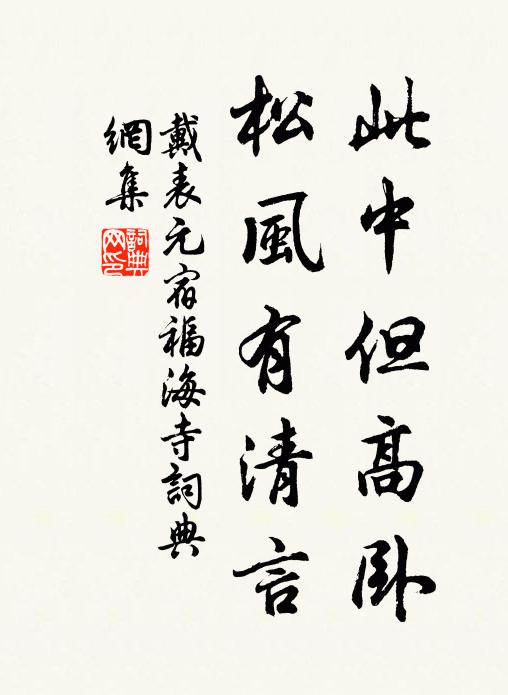 此中但高卧
松風有清言
戴表元宿福海寺詞典
網集
詞典
网印